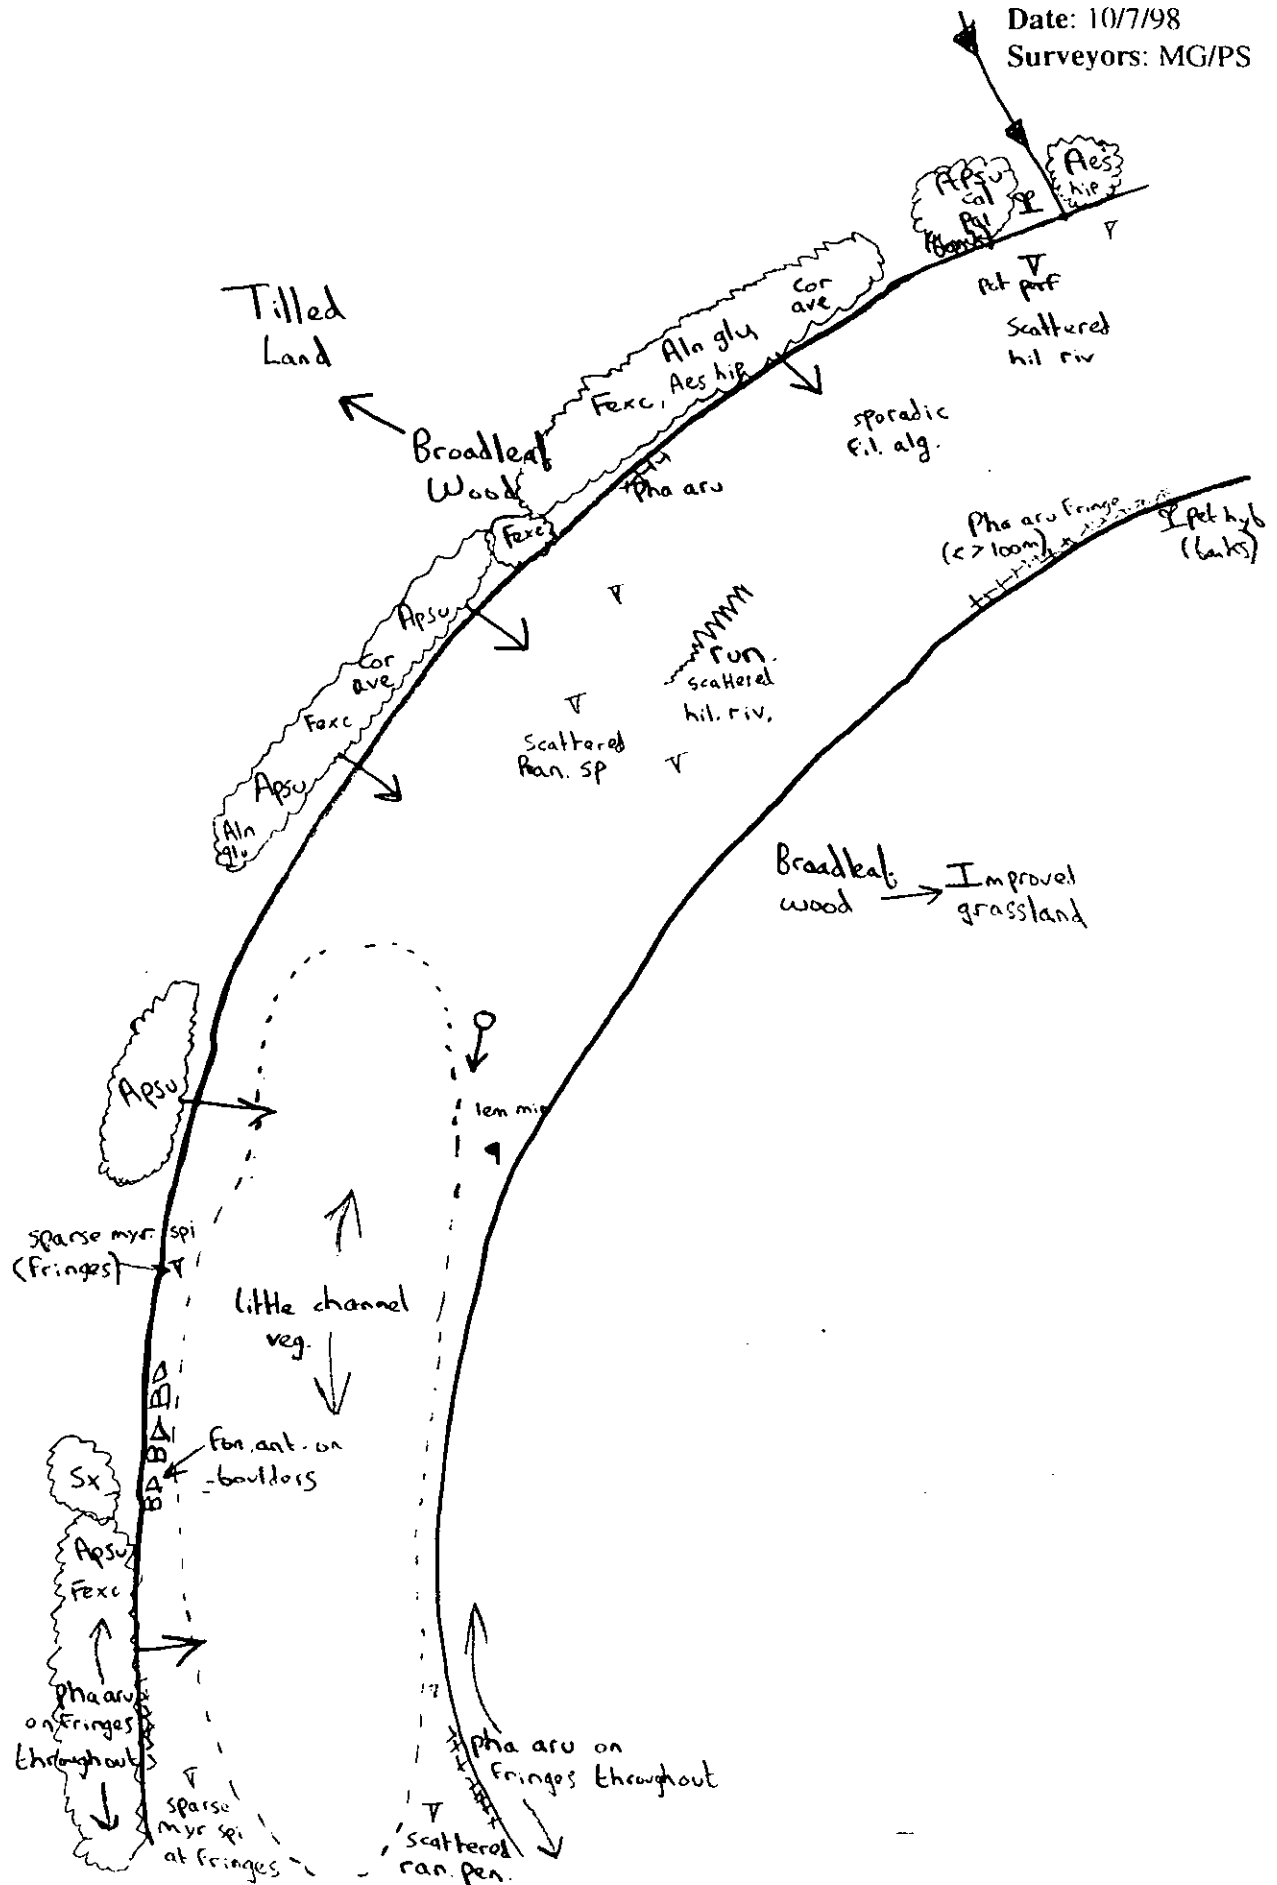 Date: 10/7/98
Surveyors: MG/PS
Aes
hip
Apsu
cal
pal
(banks)
Pot perf
Scattered
hil riv
Tilled
Land
Cor
ave
Aln glu
Fexc, Aes hip
Broadleaf
Wood
sporadic
fil. alg.
Pha aru
Fexc
Pha aru fringe
(<>100m)
pet hyb
(banks)
Apsu
Cor
ave
Fexc
Apsu
Aln
glu
run.
scattered
hil. riv.
Scattered
Ran. sp
Broadleaf
wood
Improved
grassland
Apsu
len min
sparse myr. spi
(fringes)
little channel
veg.
B
B
B
fon. ant. on
boulders
Sx
Apsu
Fexc
pha aru
on fringes
throughout
pha aru on
fringes throughout
sparse
myr spi
at fringes
scattered
ran. pen.